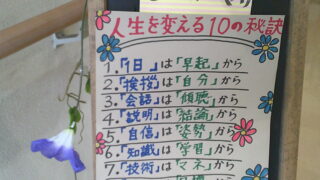 人生を変える10の秘訣
1.「1日」は「早起」から
2.「挨拶」は「自分」から
3.「会話」は「傾聴」から
4.「説明」は「結論」から
5.「自信」は「姿勢」から
6.「知識」は「学習」から
7.「技術」は「マネ」から